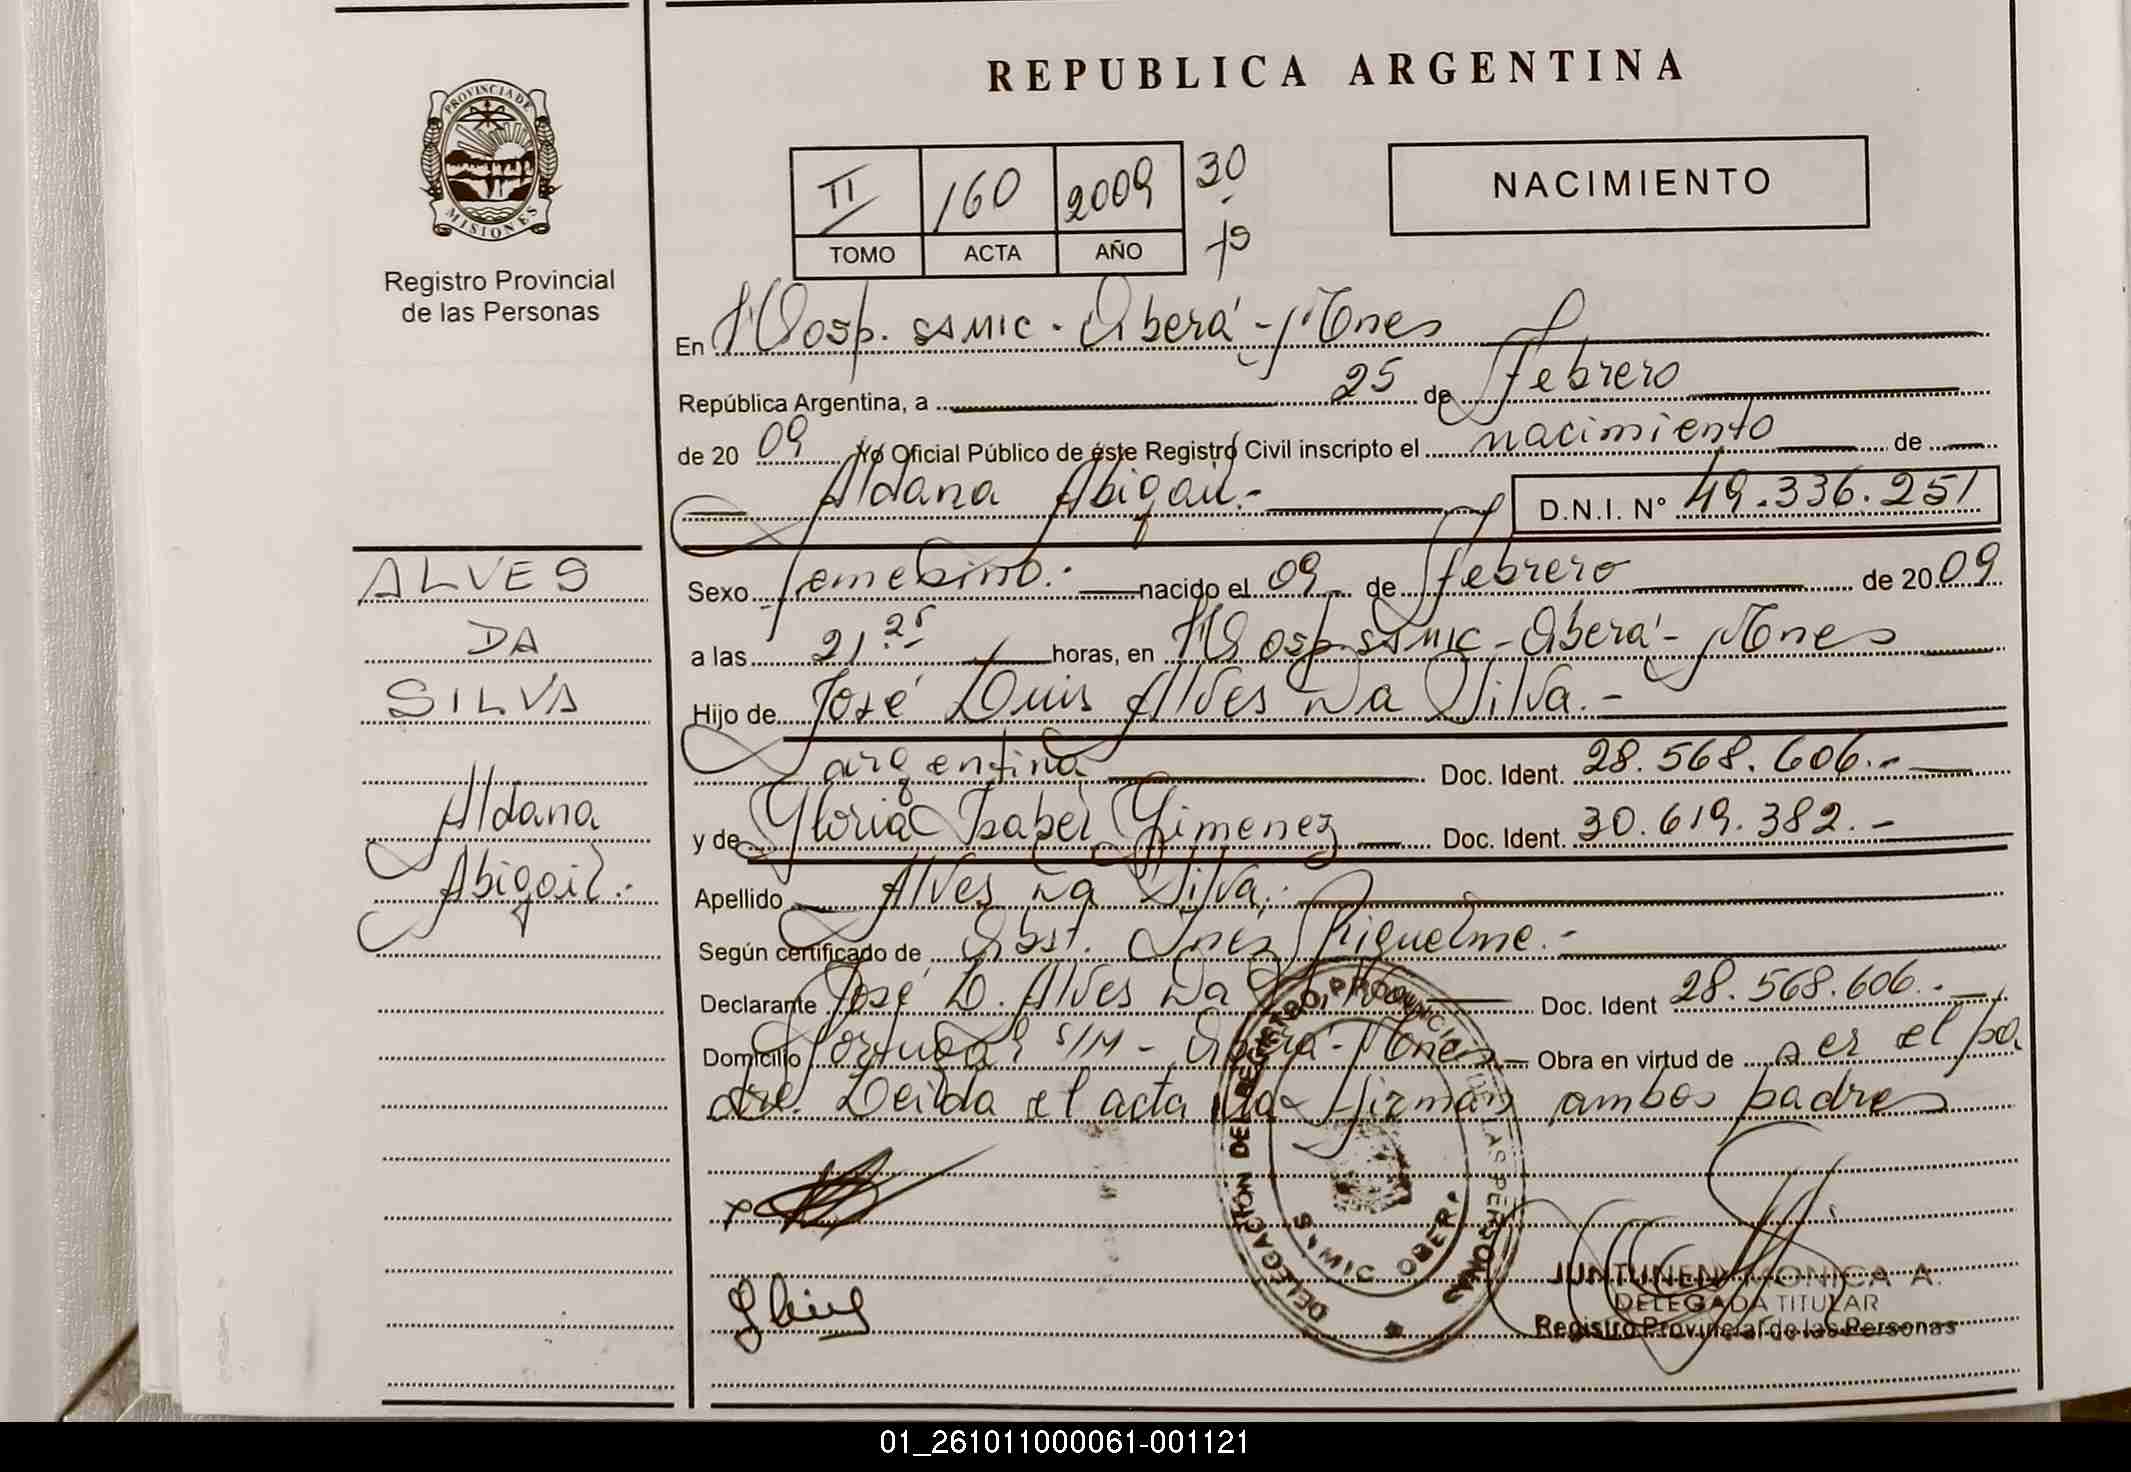 REPUBLICA ARGENTINA
PROVINCIA DE
MISIONES
Registro Provincial
de las Personas
II 160 2009 30
TOMO ACTA AÑO
NACIMIENTO
En Hosp. SAMIC - Oberá - Mnes
República Argentina, a 25 de Febrero
de 20 09 Yo Oficial Público de éste Registro Civil inscripto el nacimiento de
Aldana Abigail.- D.N.I. Nº 49.336.251
ALVES
DA
SILVA
Aldana
Abigail.-
Sexo femenino.- nacido el 09 de febrero de 20 09
a las 21 25 horas, en Hosp. SAMIC - Oberá - Mnes
Hijo de José Luis Alves Da Silva.-
argentina Doc. Ident. 28.568.606.-
y de Gloria Isabel Gimenez Doc. Ident. 30.619.382.-
Apellido Alves Da Silva.-
Según certificado de Obst. Inez Riquelme.-
Declarante José L. Alves Da Silva Doc. Ident 28.568.606.-
Domicilio Portugal S/N - Oberá - Mnes Obra en virtud de ser el pa
dre. Leída el acta la firman ambos padres
DELEGACION DEL REGISTRO PROVINCIAL DE LAS PERSONAS
SAMIC OBERA
JUNTUNEN MONICA A.
DELEGADA TITULAR
Registro Provincial de las Personas
01_261011000061-001121